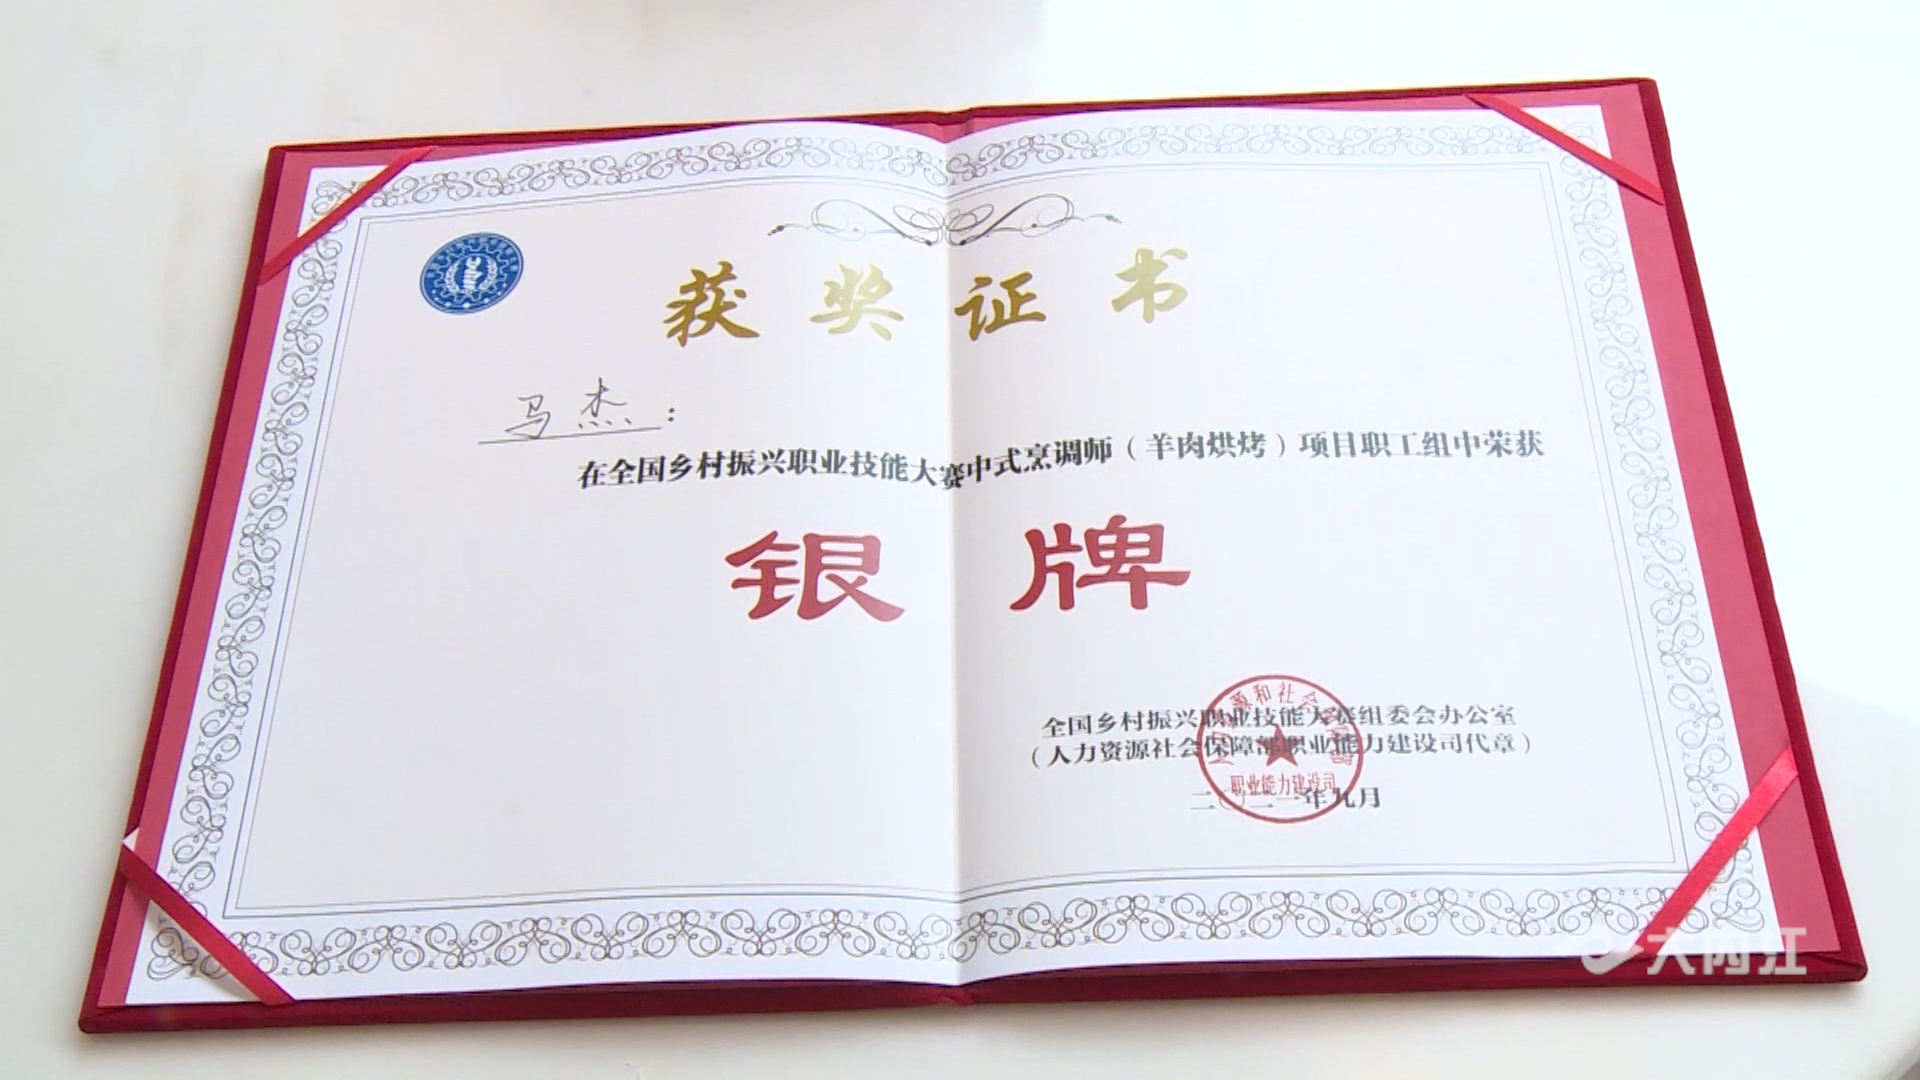 获奖证书
马杰：
在全国乡村振兴职业技能大赛中式烹调师（羊肉烘烤）项目职工组中荣获
银牌
全国乡村振兴职业技能大赛组委会办公室
（人力资源社会保障部职业能力建设司代章）
二〇二一年九月
职业能力建设司
大内江